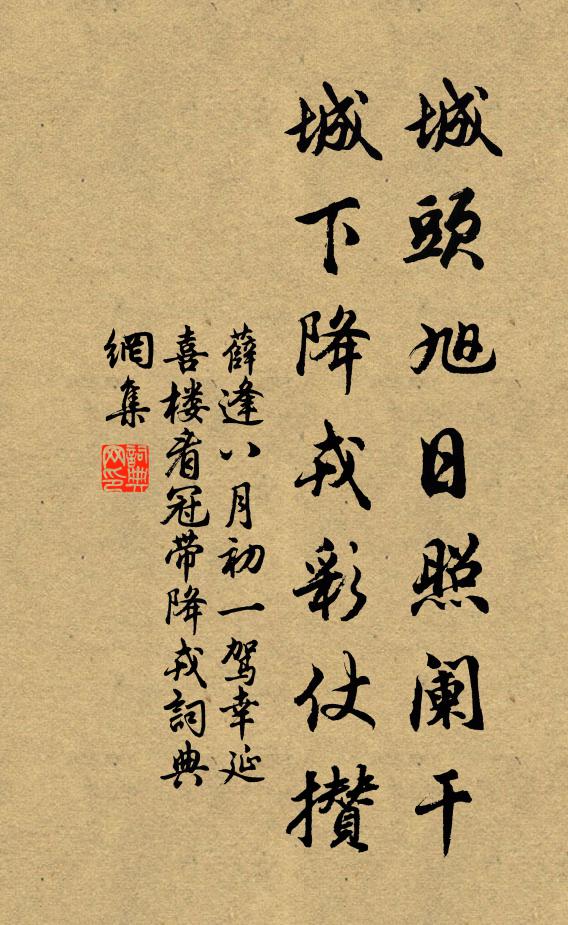 城頭旭日照阑干
城下降戎彩仗攅
薛逢八月初一駕幸延
喜楼看冠带降戎詞典
網集
詞典
网印